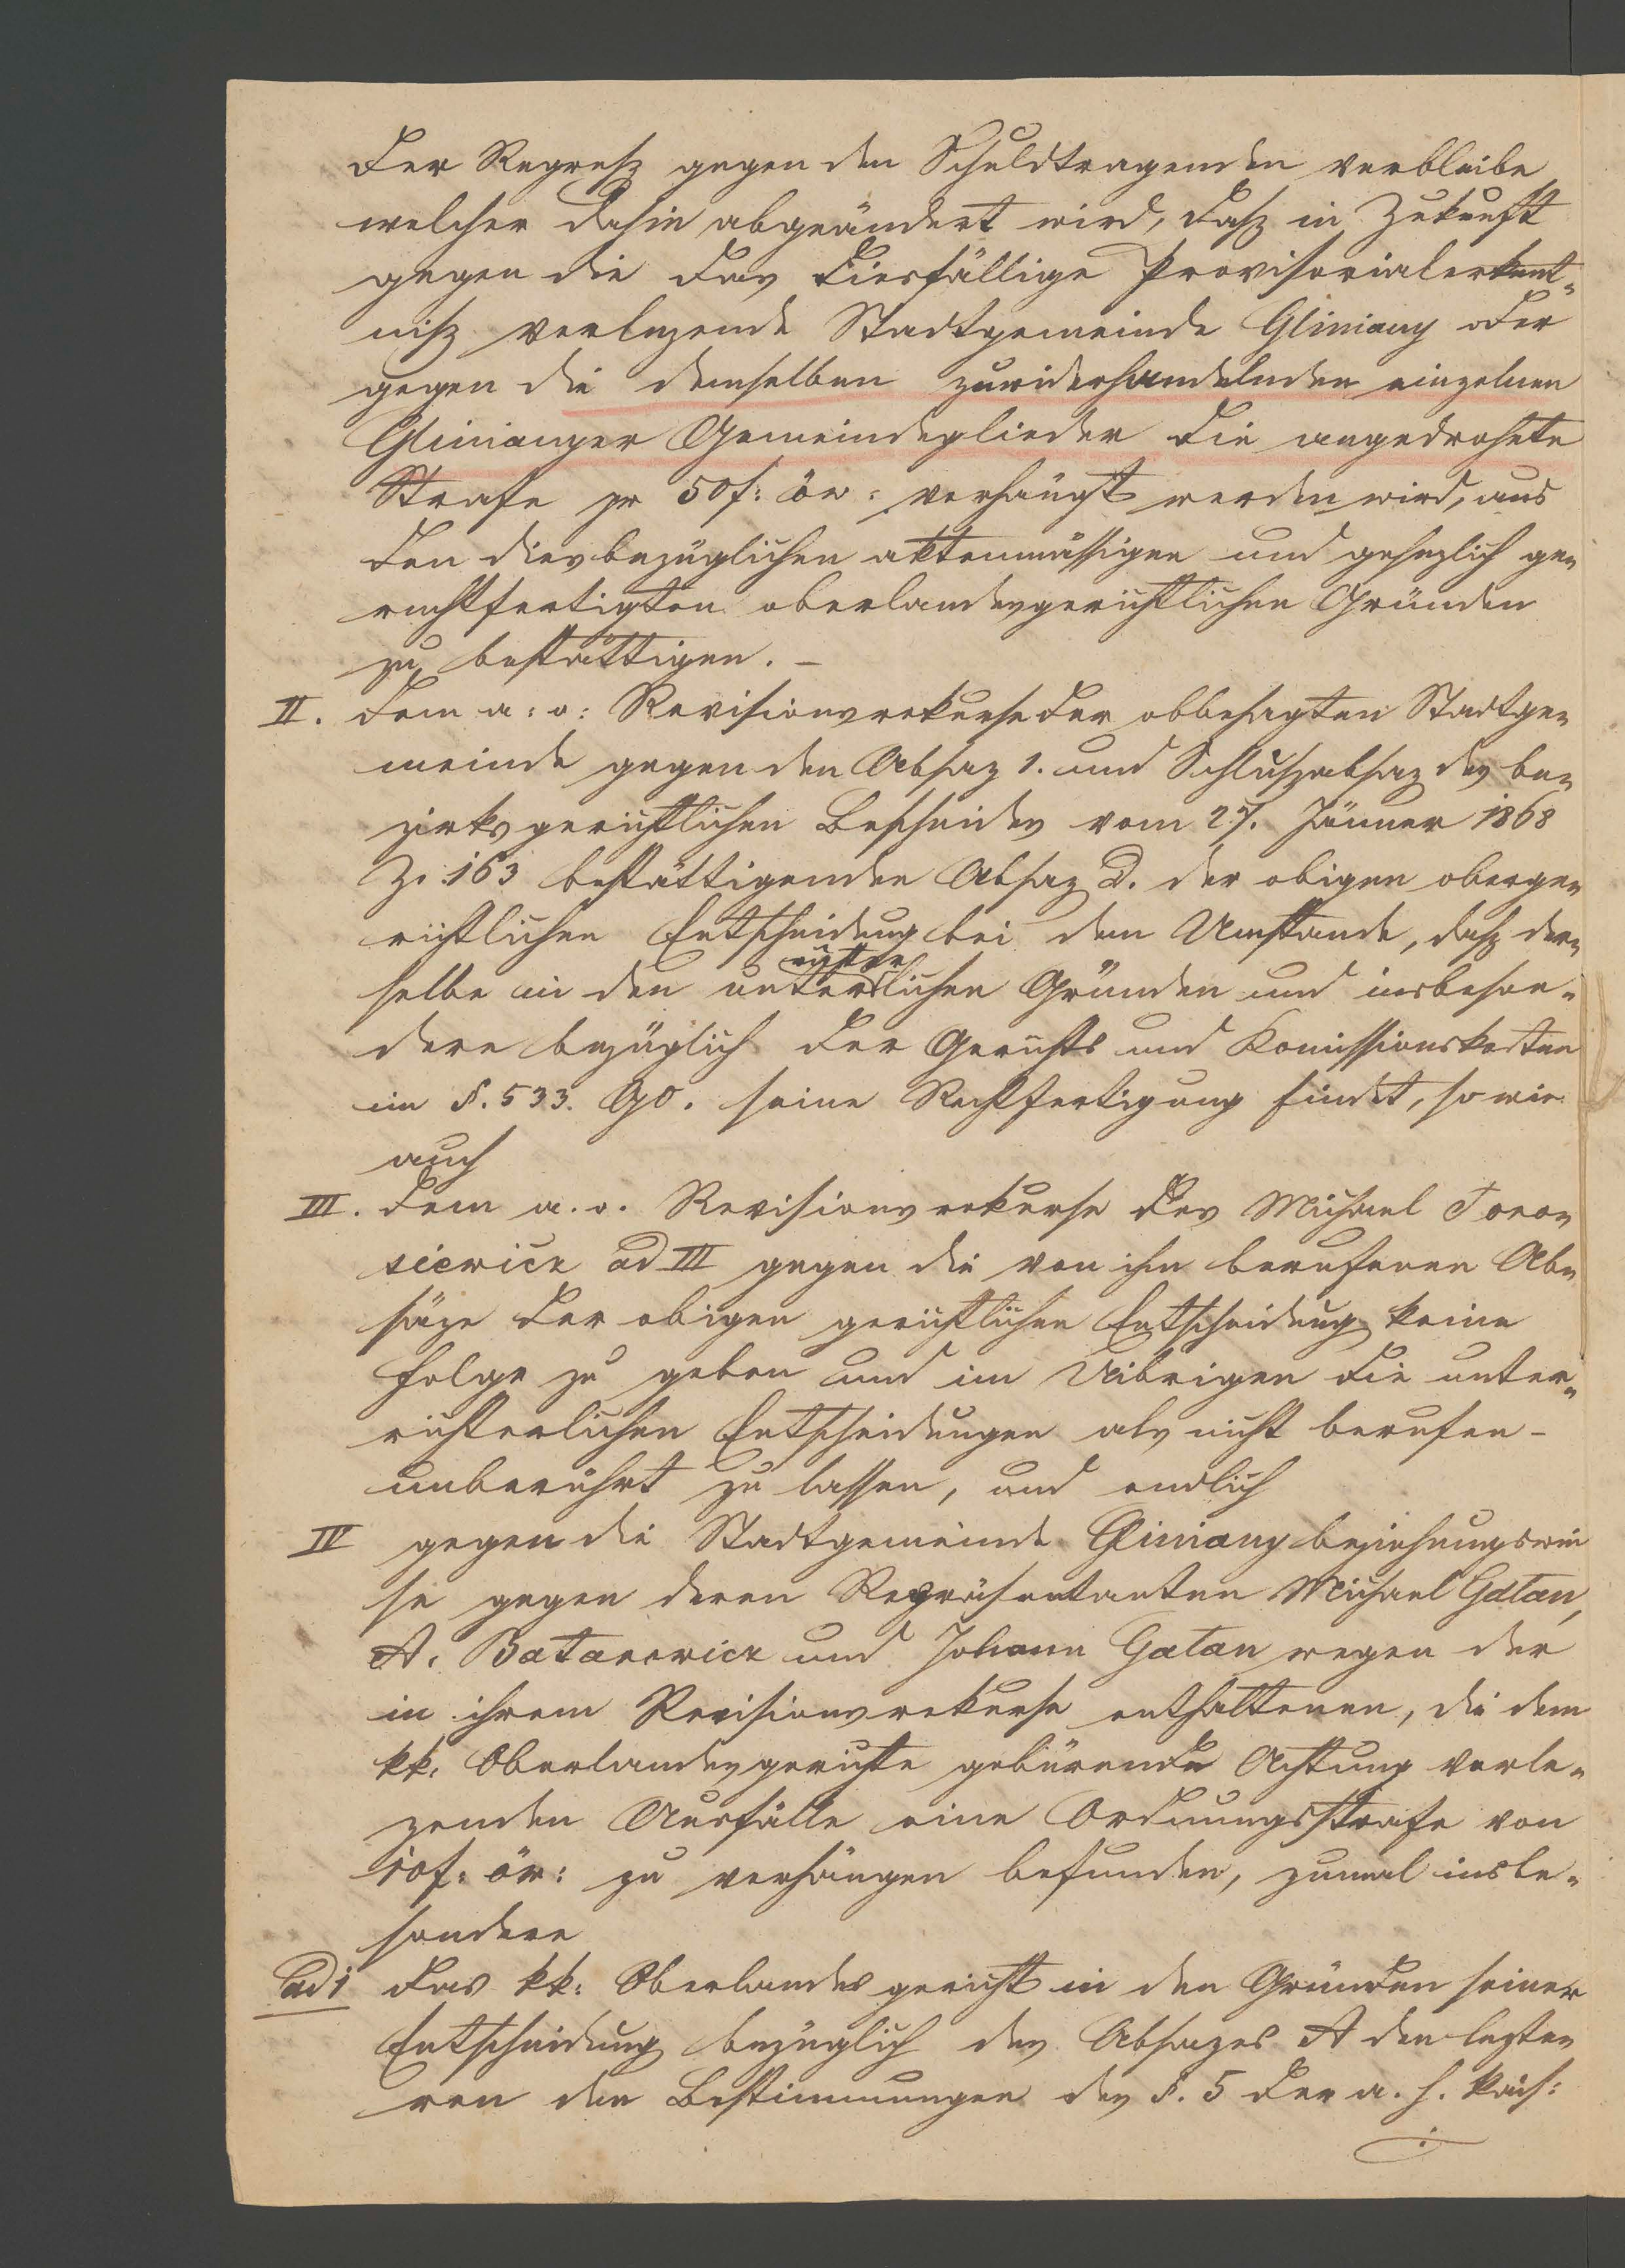 der Regreß gegen den Schuldtragenden verbleibe
welcher dahin abgeändert wird, daß in Zukunft
gegen die das diesfällige Provisorialerkent-
niß verlezende Stadtgemeinde Gliniany oder
gegen die demselben zuwiderhandelnden einzelnen
Glinianyer Gemeindeglieder die angedrohete
Strafe pr 50 f: öw: verhängt werden wird, aus
den diesbezüglichen aktenmässigen und gesezlich ge-
rechtfertigten oberlandesgerichtlichen Gründen
zu bestättigen. –
II. dem a: o: Revisionsrekurse der obbesagten Stadtge-
meinde gegen den Absaz 1. und Schlußabsaz des be-
zirksgerichtlichen Bescheides vom 27. Jänner 1868
Z. 163 bestättigenden Absaz D. der obigen oberge-
richtlichen Entscheidung bei dem Umstande, daß der-
selbe in den unterrichterlichen Gründen und insbeson-
dere bezüglich der Gerichts und Komissionskosten
im §. 533. GO. seine Rechtfertigung findet, so wie
auch
III. dem a. o. Revisionsrekurse des Michael Toro-
siewicz ad III gegen die von ihm berufenen Ab-
säze der obigen gerichtlichen Entscheidung keine
Folge zu geben und im Uibrigen die unter-
richterlichen Entscheidungen als nicht berufen –
unberührt zu lassen, und endlich
IV gegen die Stadtgemeinde Gliniany beziehungswei
se gegen deren Repräsentanten Michael Gałan,
A. Batarowicz und Johann Gałan wegen der
in ihrem Revisionsrekurse enthaltenen, die dem
kk. Oberlandesgerichte gebürende Achtung verle-
zenden Ausfälle eine Ordnungsstrafe von
10 f: öw: zu verhängen befunden, zumal insbe-
sondere
ad 1 das kk: Oberlandesgericht in den Gründen seiner
Entscheidung bezüglich des Absazes A den lezte-
ren den Bestimmungen des §. 5 der a. h. kais: